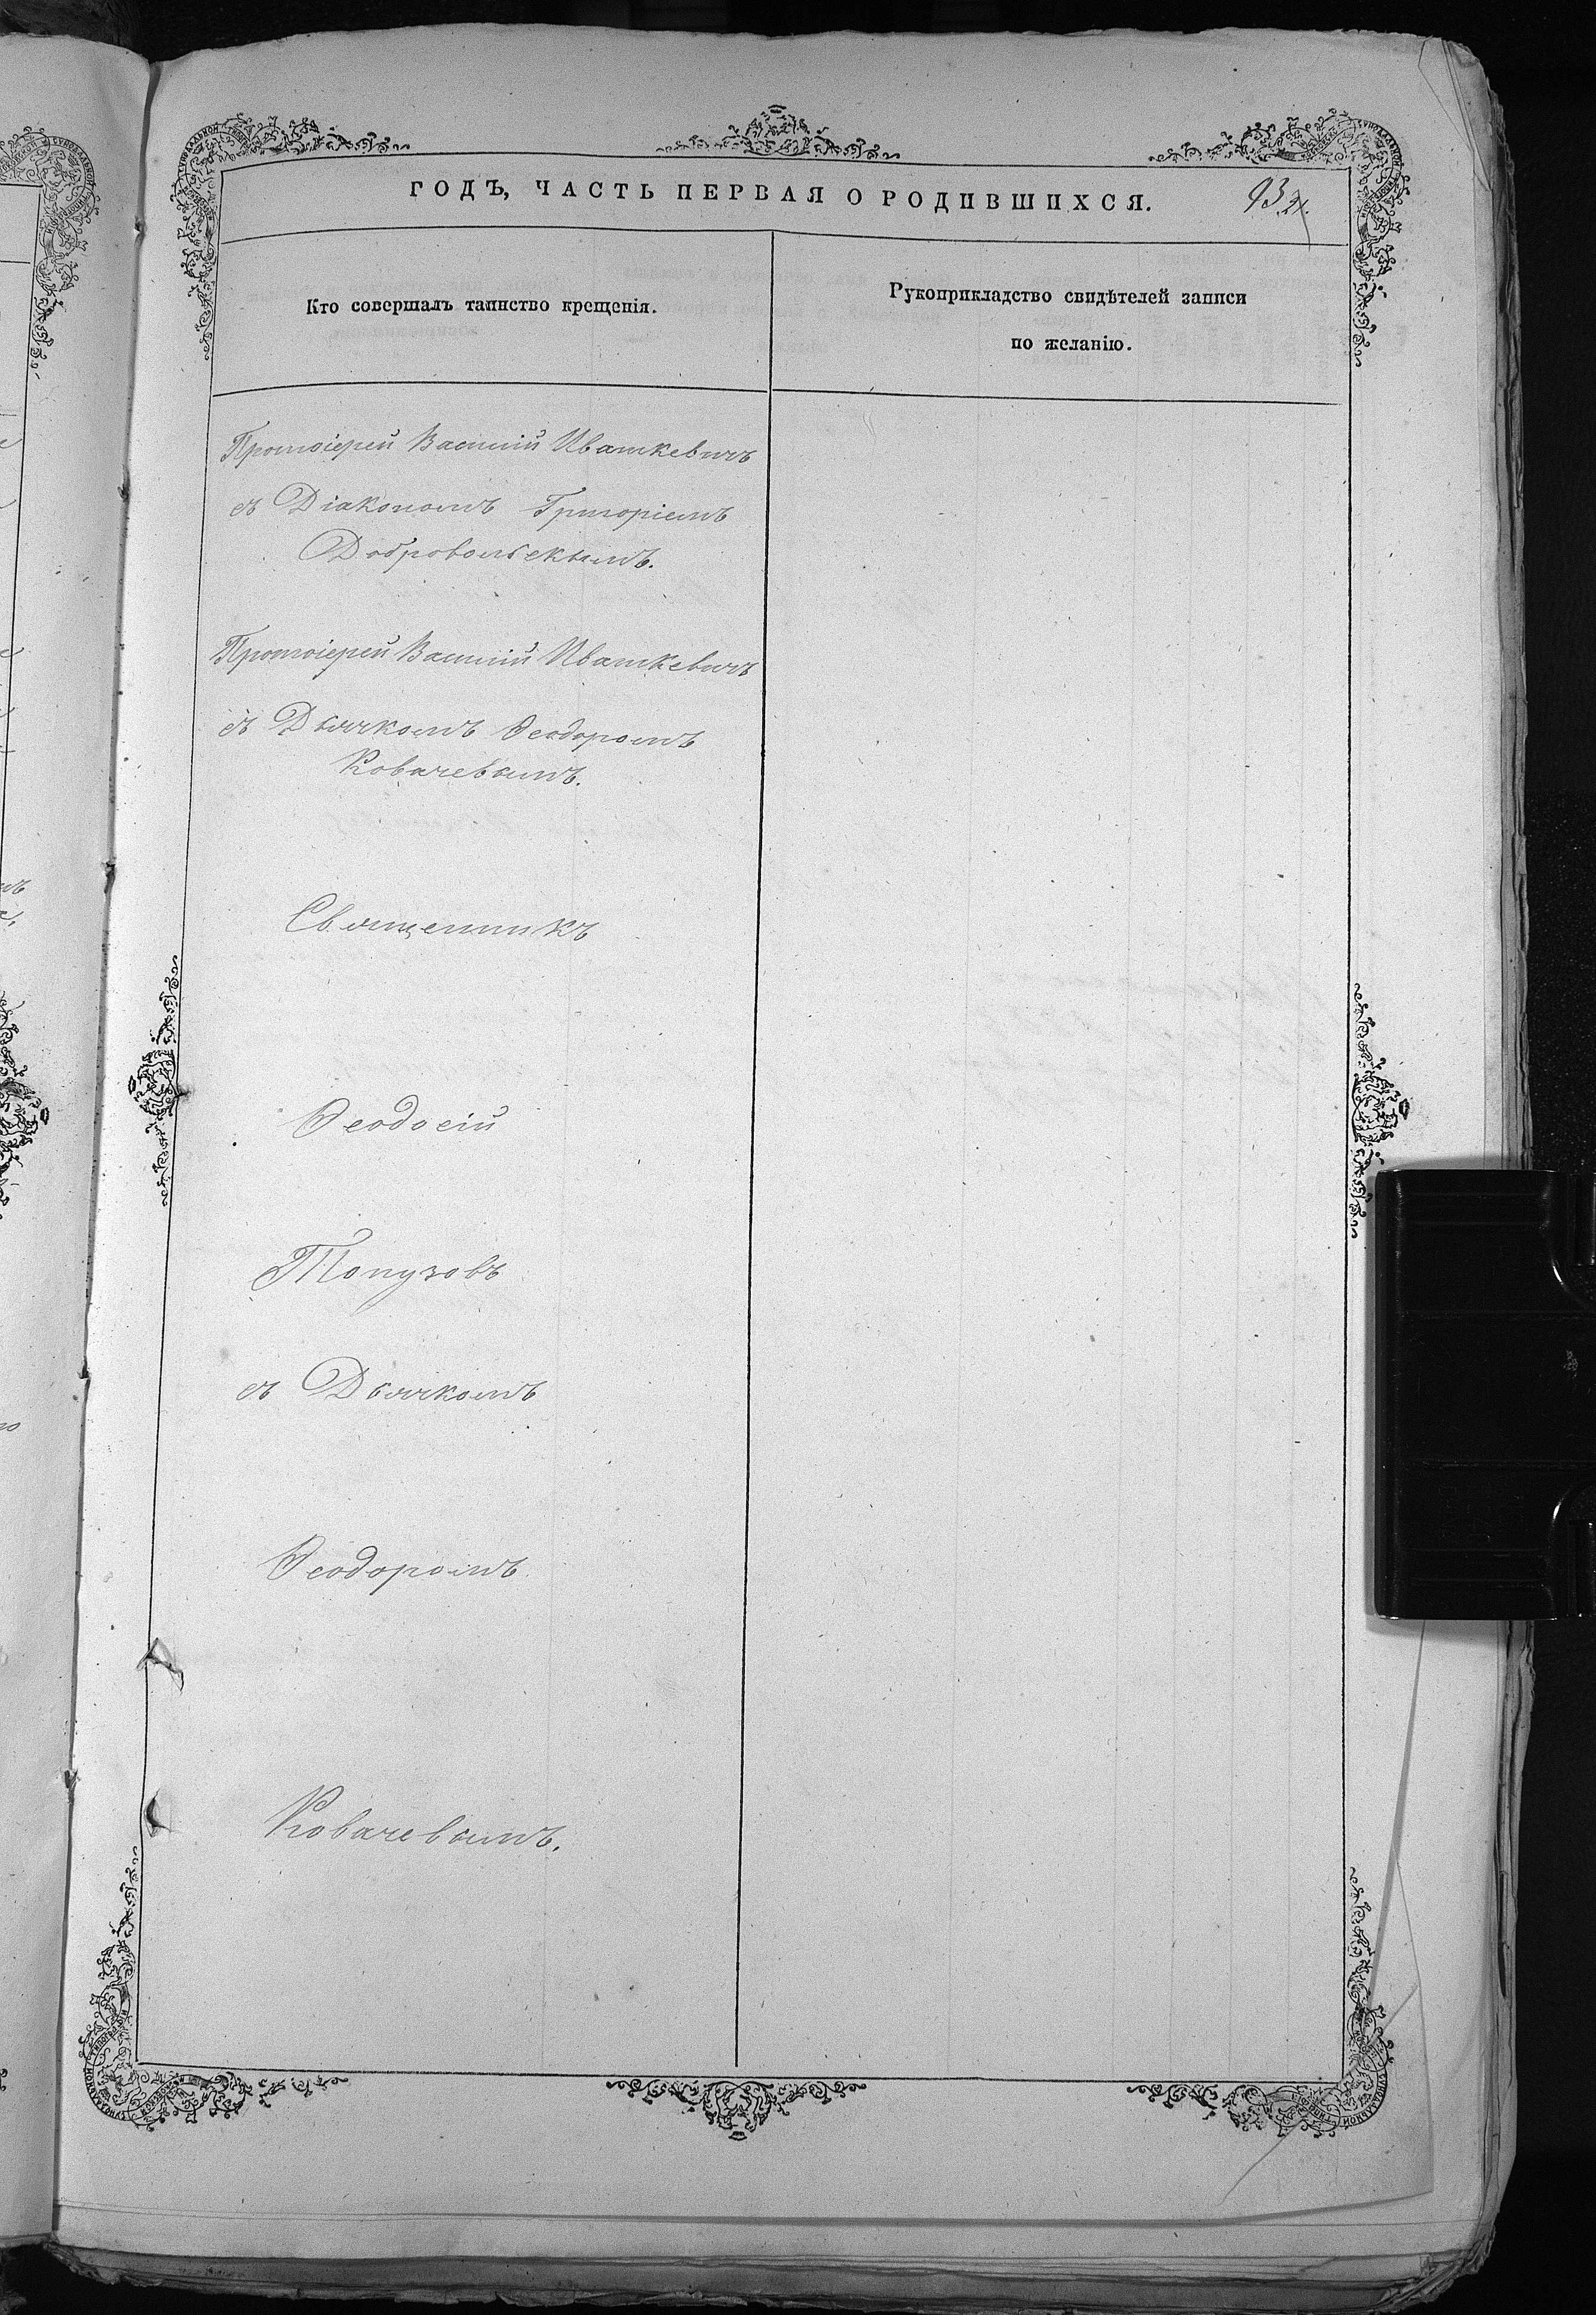 ГОДЪ, ЧАСТЬ ПЕРВАЯ О РОДИВШИХСЯ.
93
21.
Кто совершалъ таинство крещенія.
Рукоприкладство свидѣтелей записи
по желанію.
Протоіерей Василій Ивашкевичъ
съ Діакономъ Григоріемъ
Добровольскимъ.
Протоіерей Василій Ивашкевичъ
съ Дьячкомъ Ѳеодоромъ
Ковачевымъ.
Священникъ
Ѳеодосій
Топузовъ
съ Дьячкомъ
Ѳеодоромъ
Ковачевымъ.